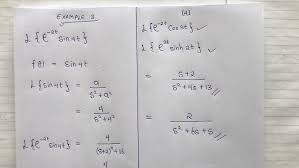 EXAMPLE 3
L{e^-2t sin 4t}
f(t) = sin 4t
L{sin 4t} = a / s²+a²
= 4 / s²+4²
L{e^-2t sin 4t} = 4 / (s+2)²+16
4
(A)
L{e^-2t Cos 3t} ✓
L{e^-3t sinh 2t} ✓
= s+2 / s²+4s+13
= 2 / s²+6s+5